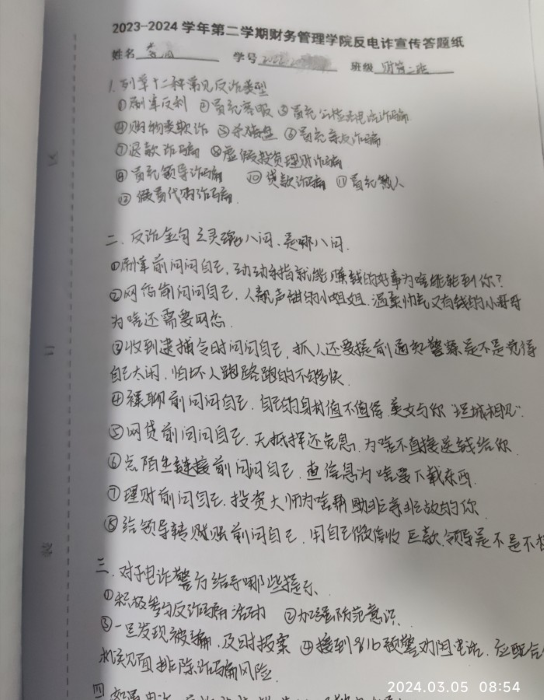 2023-2024 学年第二学期财务管理学院反电诈宣传答题纸
姓名 学号 班级 财管二班
1. 列举十二种常见反诈类型
①刷单反利 ②冒充客服 ③冒充公检法电话诈骗
④购物类欺诈 ⑤杀猪盘 ⑥冒充亲友诈骗
⑦退款诈骗 ⑧虚假投资理财诈骗
⑨冒充领导诈骗 ⑩贷款诈骗 ⑪冒充熟人
⑫ 诈骗.
二. 反诈金句之灵魂八问, 是哪八问.
①刷单前问问自己, 动动手指就能赚钱的好事为啥能轮到你?
②网恋前问问自己, 人靓声甜的小姐姐, 温柔帅气又有钱的小哥哥
为啥还需要网恋.
③收到逮捕令时问问自己, 抓人还要提前通知 警察是不是觉得
自己太闲, 怕坏人跑路跑的不够快
④裸聊前问问自己, 自己的身材值不值得 美女与你"坦诚相见".
⑤网贷前问问自己, 无抵押还免息, 为啥不直接送钱给你
⑥点陌生链接前问问自己, 查信息为啥要下载东西.
⑦理财前问问自己, 投资大师为啥帮助非亲非故的你
⑧给领导转账前问自己, 用自己微信收巨款, 领导是不是不想
三. 对于电诈警方给予哪些提示.
①积极参与反诈骗活动 ②加强防范意识.
③一旦发现被骗, 及时报案 ④接到 预警劝阻电话, 应配合
见面排除诈骗风险.
四
2024.03.05 08:54